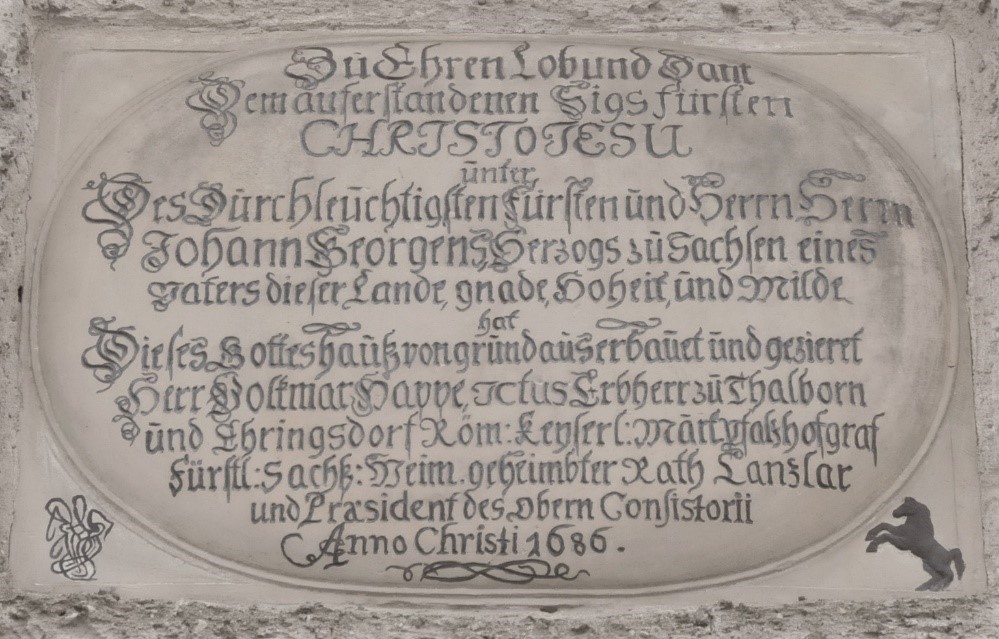 Zu Ehren Lob und Dant
Dem auferstandenen Sigsfürsten
CHRISTO IESU
unter
Des Durchleuchtigsten Fürsten und Herrn Herrn
Johann Georgens, Herzogs zu Sachsen eines
Vaters dieser Lande, gnade, Hoheit, und Milde
hat
Dieses Gotteshauß von grund aus erbauet und gezieret
Herr Volkmar Happe, ICtus Erbherr zu Thalborn
und Ehringsdorf Röm: Keyserl: Pfaltzhofgraf
Fürstl: Sachß: Weim. geheimbter Rath Cantzlar
und Præsident des Obern Consistorii
Anno Christi 1686.